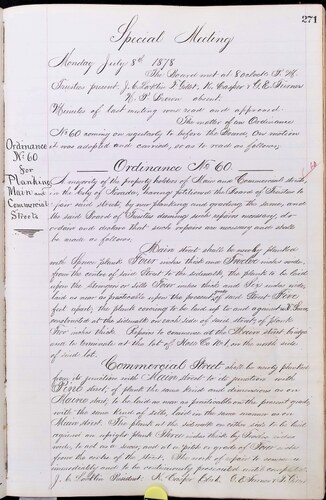 271
Special Meeting
Monday July 8th 1878
The Board met at 8 oclock P. M.
Trustees present J. C. F. Cutler, K. Casper & C. E. Turner
K. P. Grown absent.
Minutes of last meeting were read and approved.
The matter of an Ordinance
No 60 coming on regularly to before the Board, On motion
it was adopted and carried, so as to read as follows;
Ordinance
No 60
for
Planking
Main and
Commercial
Streets
Ordinance No 60.
A majority of the property holders of Main and Commercial streets,
in the City of having petitioned the Board of Trustees to
repair said streets, by new planking and grading the same, and
the said Board of Trustees deeming such repairs necessary, do
ordain and declare that such repairs are necessary and shall
be made as follows;
Main street shall be newly planked
with plank Four inches thick and Twelve inches wide,
from the center of said Street to the sidewalk, the plank to be laid
upon stringers or sills Four inches thick and Six inches wide,
laid as near as practicable upon the present grade of said Street Five
feet apart; the plank covering to be laid up to and against
constructed at the sidewalk on each side of said street, of plank
Five inches thick. Repairs to commence at the Main street bridge
and to terminate at the lot of Moss Co No 1 on the north side
of said lot.
Commercial Street shall be newly planked
from its junction with Main street to its junction with
Pine street, of plank the same kind and dimensions as on
Main street, to be laid as near as practicable on the present grade
with the same kind of sills, laid in the same manner as on
Main street. The plank at the sidewalk on either side to be laid
against an upright plank Three inches thick by Twelve inches
wide, to act as a and at a or grade of Four inches
from the center of the street, The work of repair to commence
immediately and to be continuously prosecuted until completed.
President K. Casper Clerk, C. E. Turner &